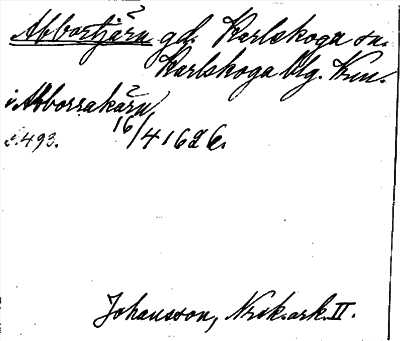 Abbortjärn gd. Karlskoga sn.
Karlskoga blg. Krm.
i Abborrakärn
s. 493. 16/4 1626.
Johansson, Nrk. ark. II.